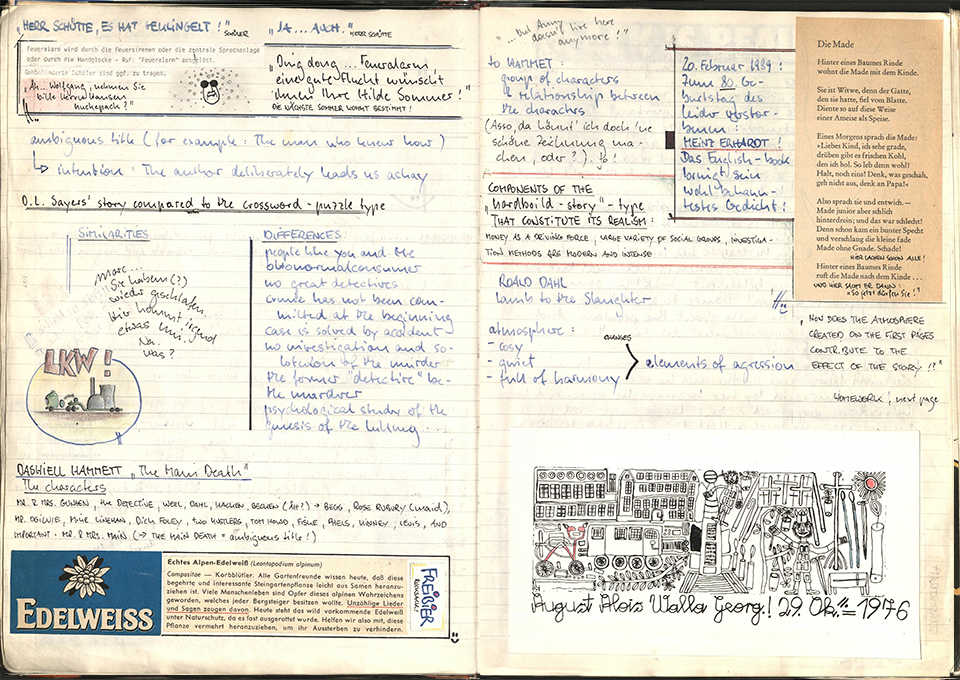 "HERR SCHÜTTE, ES HAT GEKLINGELT!" SCHÜLER
"JA... AUCH." HERR SCHÜTTE
Feueralarm wird durch die Feuersirenen oder die zentrale Sprechanlage
oder durch die Handglocke - Ruf: "Feueralarm" ausgelöst.
Gehbehinderte Schüler sind ggf. zu tragen.
"Ah... Wolfgang, nehmen Sie
bitte Herrn Hansen
huckepack?"
"Ding dong... Feueralarm
eine gute Flucht wünscht
Ihnen Ihre Hilde Sommer!"
DIE NÄCHSTE SOMMER KOMMT BESTIMMT!
ambiguous title (for example: The man who knew how)
↳ intention: The author deliberately leads us astray
D.L. Sayers' story compared to the crossword-puzzle type
SIMILARITIES
more...
Sie haben (??)
wieder geschlafen.
Hier kommt irgend
etwas hin.
Na.
was?
LKW!
DIFFERENCES
people like you and the
ottonormalconsumer
no great detectives
crime has not been com-
mitted at the beginning
case is solved by accident
no investigation and so-
lution of the murder
the former "detective" be-
the murderer
psychological study of the
genesis of the killing
DASHIELL HAMMETT "The Main Death"
The characters
MR. & MRS. GUNGEN, the DETECTIVE, WEEL, DAHL, HACKEN, BECKEN (äh?) → BEGG, ROSE RUBURY (maid),
MR. OGILWIE, MIKE LINEHAN, DICK FOLEY, two HUSTLERS, TOM HOWD, FISHE, PHELS, KENNEY, LEWIS, AND
IMPORTANT: MR. & MRS. MAIN (→ THE MAIN DEATH = ambiguous title!)
EDELWEISS
Echtes Alpen-Edelweiß (Leontopodium alpinum)
Compositae — Korbblütler. Alle Gartenfreunde wissen heute, daß diese
begehrte und interessante Steingartenpflanze leicht aus Samen heranzu-
ziehen ist. Viele Menschenleben sind Opfer dieses alpinen Wahrzeichens
geworden, welches jeder Bergsteiger besitzen wollte. Unzählige Lieder
und Sagen zeugen davon. Heute steht das wild vorkommende Edelweiß
unter Naturschutz, da es fast ausgerottet wurde. Helfen wir also mit, diese
Pflanze vermehrt heranzuziehen, um ihr Aussterben zu verhindern.
FREIBIER
"...but Anny
doesn't live here
anymore!"
to HAMMET:
groups of characters
& relationship between
the characters
(Asso, da könnt' ich doch 'ne
schöne Zeichnung ma-
chen, oder?). Jo!
20. Februar 1989!
Zum 80. Ge-
burtstag des
leider verstor-
benen:
HEINZ ERHARDT!
Das English-book
bringt sein
wohl bekann-
testes Gedicht!
Die Made
Hinter eines Baumes Rinde
wohnt die Made mit dem Kinde.
Sie ist Witwe, denn der Gatte,
den sie hatte, fiel vom Blatte.
Diente so auf diese Weise
einer Ameise als Speise.
Eines Morgens sprach die Made:
»Liebes Kind, ich sehe grade,
drüben gibt es frischen Kohl,
den ich hol. So leb denn wohl!
Halt, noch eins! Denk, was geschah,
geh nicht aus, denk an Papa!«
Also sprach sie und entwich. —
Made junior aber schlich
hinterdrein; und das war schlecht!
Denn schon kam ein bunter Specht
und verschlang die kleine fade
Made ohne Gnade. Schade!
HIER LACHEN SCHON ALLE!
Hinter eines Baumes Rinde
ruft die Made nach dem Kinde . . .
UND HIER SAGT ER DANN:
"So jetzt dürfen Sie!"
COMPONENTS OF THE
"hardboild-story"-type
THAT CONSTITUTE ITS REALISM:
MONEY AS A DRIVING FORCE, LARGE VARIETY OF SOCIAL GROUPS, INVESTIGA-
TION METHODS ARE MODERN AND INTENSE
ROALD DAHL
Lamb to the Slaughter
atmosphere:
- cosy
- quiet
- full of harmony
CHANGES
elements of agression
"HOW DOES THE ATMOSPHERE
CREATED ON THE FIRST PAGES
CONTRIBUTE TO THE
EFFECT OF THE STORY!?"
HOMEWORK: next page
August Alois Walla Georg.! 29. Ok.!! 1976